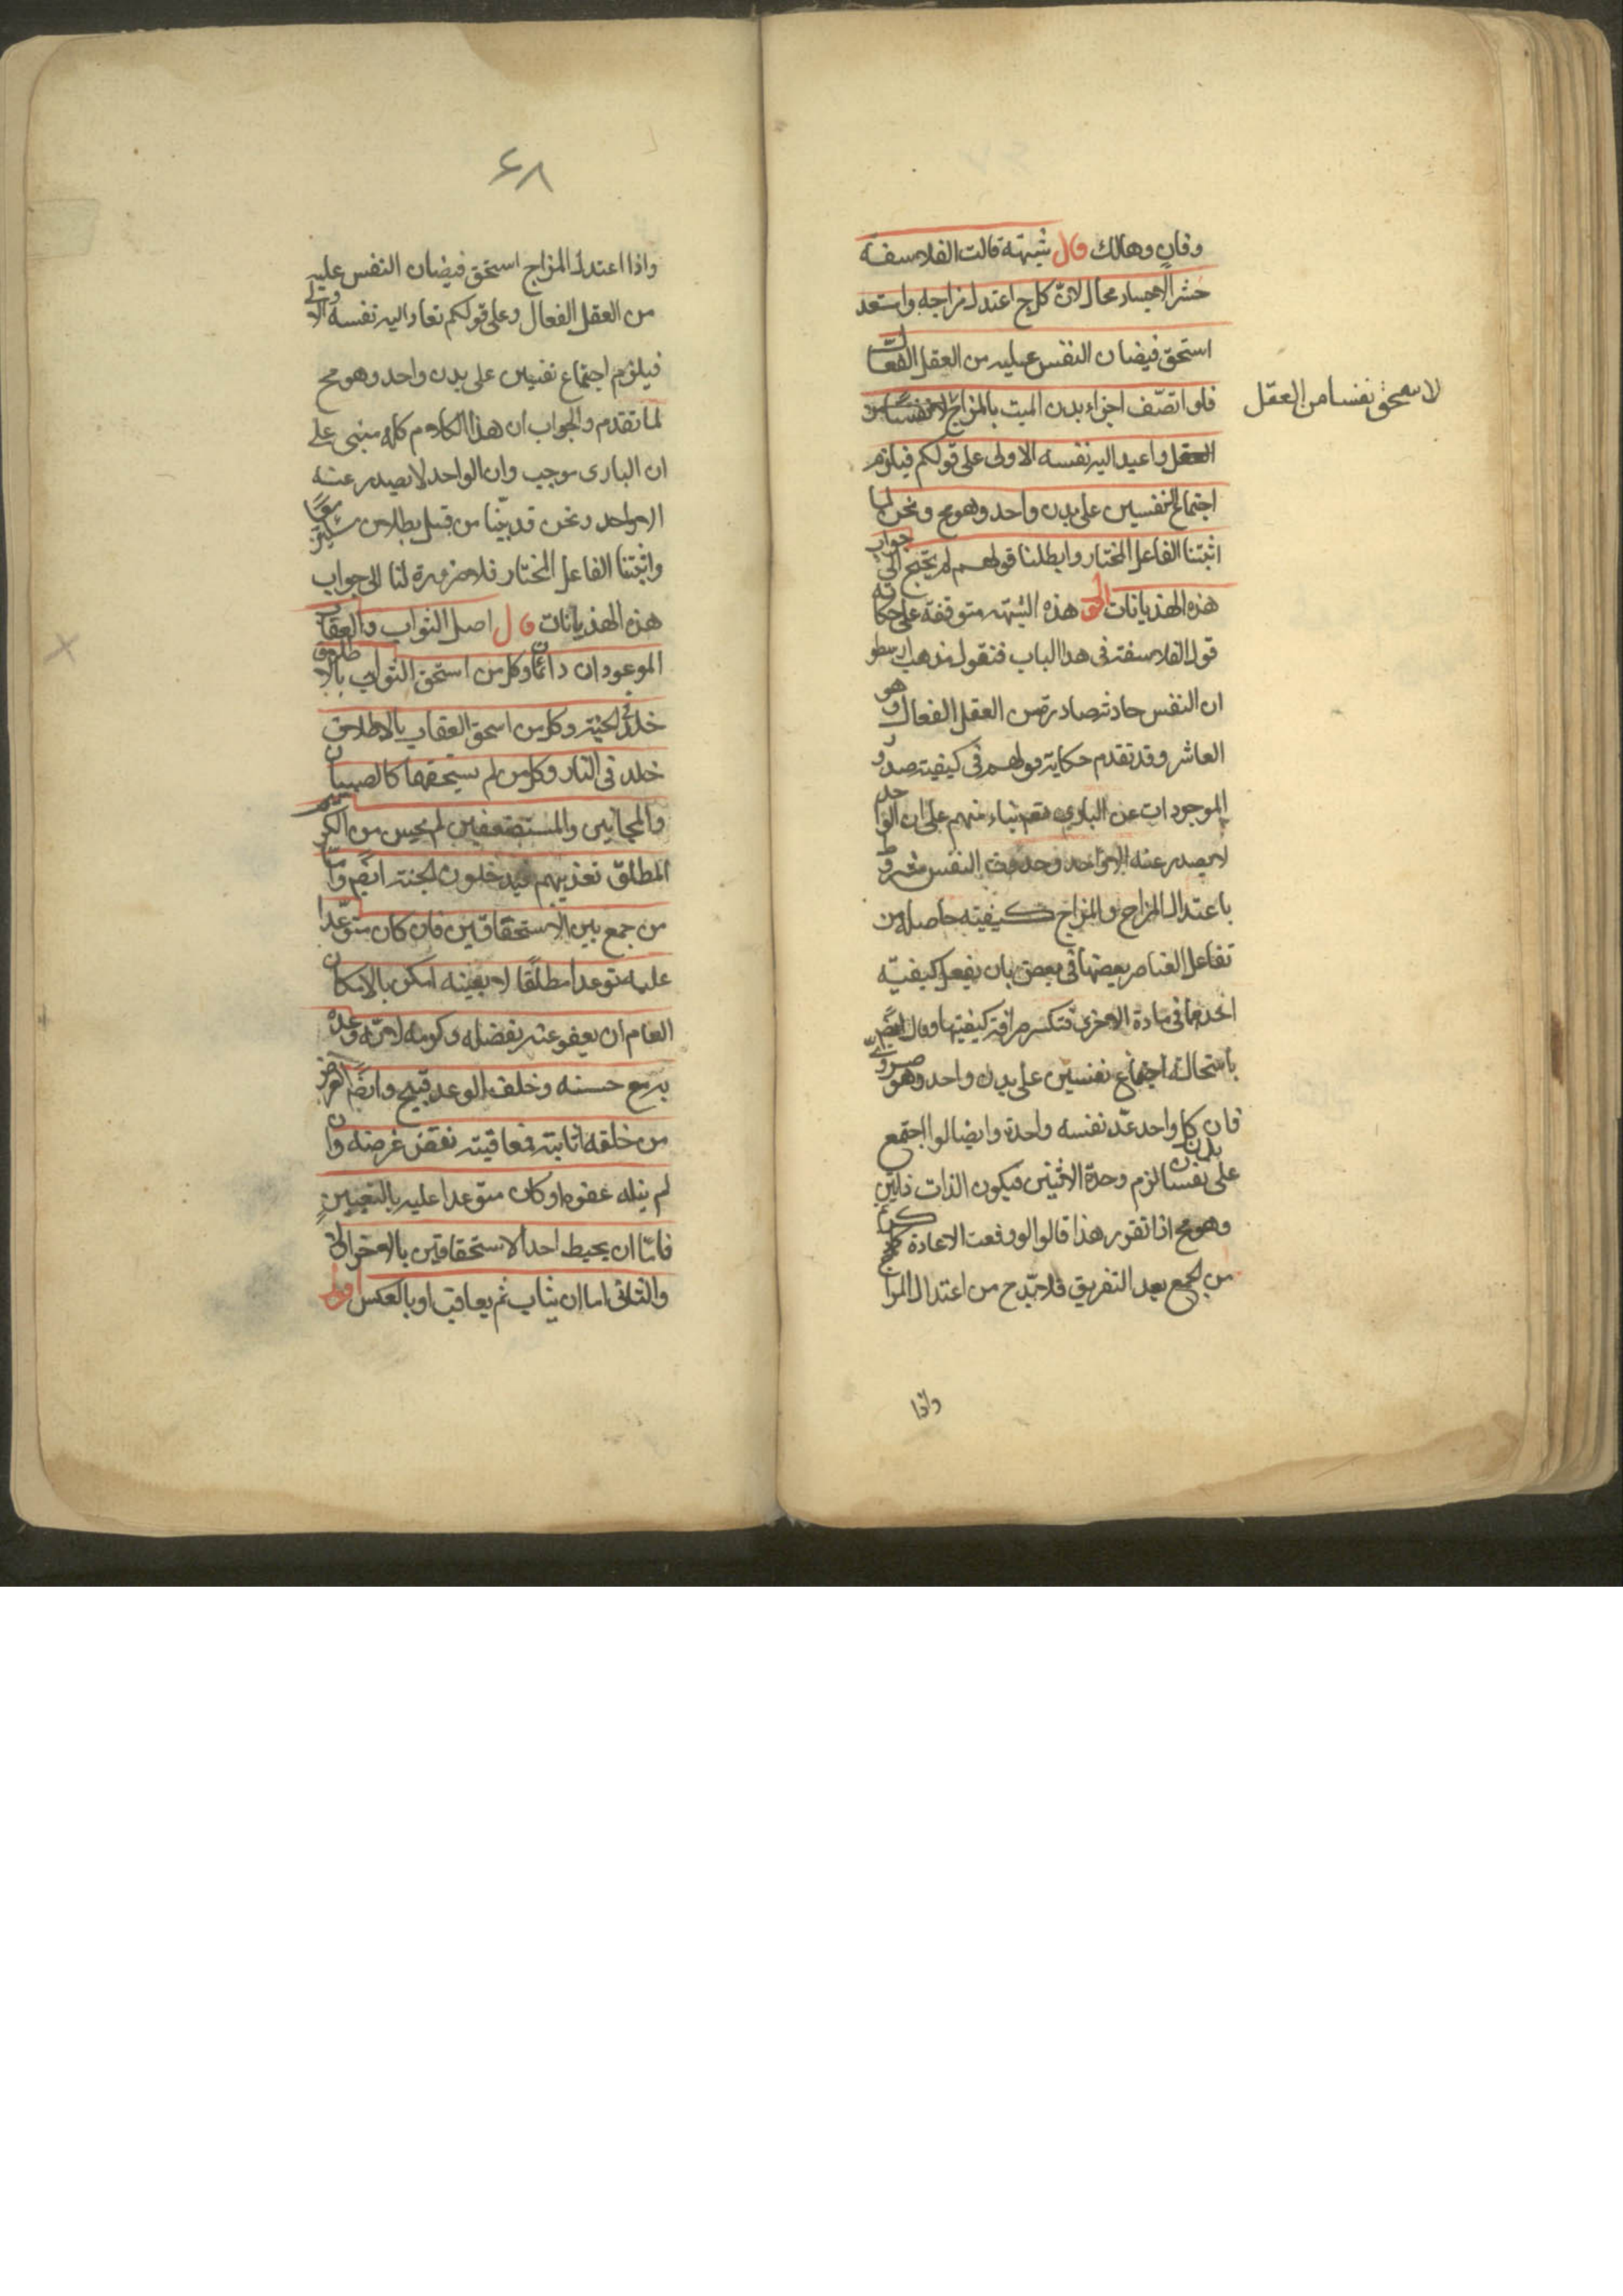 وفان وهالك قال شبهة قالت الفلاسفة
حشر الاجساد محال لانّ كل ج اعتدل مزاجه واستعد
استحق فيضان النفس عليه من العقل الفعال
فلو اتصف اجزاء بدن الميت بالمزاج
لاستحق نفسا من العقل
العقل واعيد اليه نفسه الاولى على قولكم فيلزم
اجتماع النفسين على بدن واحد وهو مح ونحن لما
اثبتنا الفاعل المختار وابطلنا قولهم لم يحتج الى جواب
هذه الهذيانات هذه الشبهة متوقفة على حكاية
قول الفلاسفة فى هذا الباب فنقول مذهب ارسطو
ان النفس حادثة صادرة من العقل الفعال وهو
العاشر وقد تقدم حكاية قولهم فى كيفية صدور
الموجودات عن البارى بناء منهم على ان الواحد
لا يصدر عنه الا واحد وحدوث النفس مشروط
باعتدال المزاج والمزاج كيفية حاصلة من
تفاعل العناصر بعضها فى بعض بان يفعل كيفية
احديها فى مادة الاخرى فتكسر صرافة كيفيتها وقال ايضا
باستحالة اجتماع نفسين على بدن واحد وهو ضرورى
فان كل واحد عدّ نفسه واحدة وايضا لو اجتمع
على نفسان بدن لزم وحدة الاثنين فيكون الذات ذاتين
وهو مح اذا تقرر هذا قالوا لو وقعت الاعادة
من الجمع بعد التفريق فلابدّ ح من اعتدال المزاج
واذا
٤٨
واذا اعتدل المزاج استحق فيضان النفس عليه
من العقل الفعال وعلى قولكم تعاد اليه نفسه الاولى
فيلزم اجتماع نفسين على بدن واحد وهو مح
لما تقدم والجواب ان هذا الكلام كله مبنى على
ان البارى موجب وان الواحد لا يصدر عنه
الا واحد ونحن قد بيّنا من قبل بطلان
واثبتنا الفاعل المختار فلا ضرورة لنا الى جواب
هذه الهذيانات قال اصل الثواب والعقاب
الموعودان دائمان وكل من استحق الثواب بالاطلاق
خلد فى الجنة وكل من استحق العقاب بالاطلاق
خلد فى النار وكل من لم يستحقهما كالصبيان
والمجانين والمستضعفين لم يحسن من الكريم
المطلق تعذيبهم فيدخلون الجنة ايضا وامّا
من جمع بين الاستحقاقين فان كان متوعّدا
عليه توعدا مطلقا لا بعينه امكن بالامكان
العام ان يعفو عنه بفضله وكرمه لانه وعده
به مع حسنه وخلف الوعد قبيح وايضا الغرض
من خلقه اثابته فمعاقبته نقض غرضه وان
لم ينله عفوه او كان متوعدا عليه بالتعيين
فامّا ان يحيط احد الاستحقاقين بالاخر اولا
والثانى اما ان يثاب ثم يعاقب او بالعكس اقول